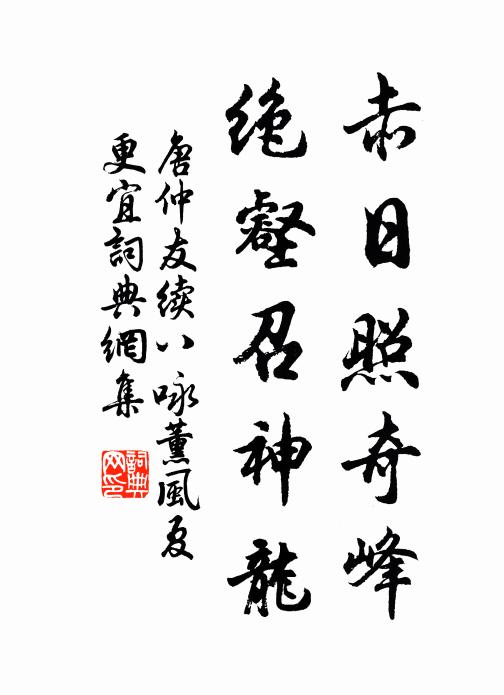 赤日照奇峰
绝壑召神龍
唐仲友續八咏薰風夏
更宜詞典網集
詞典
网印